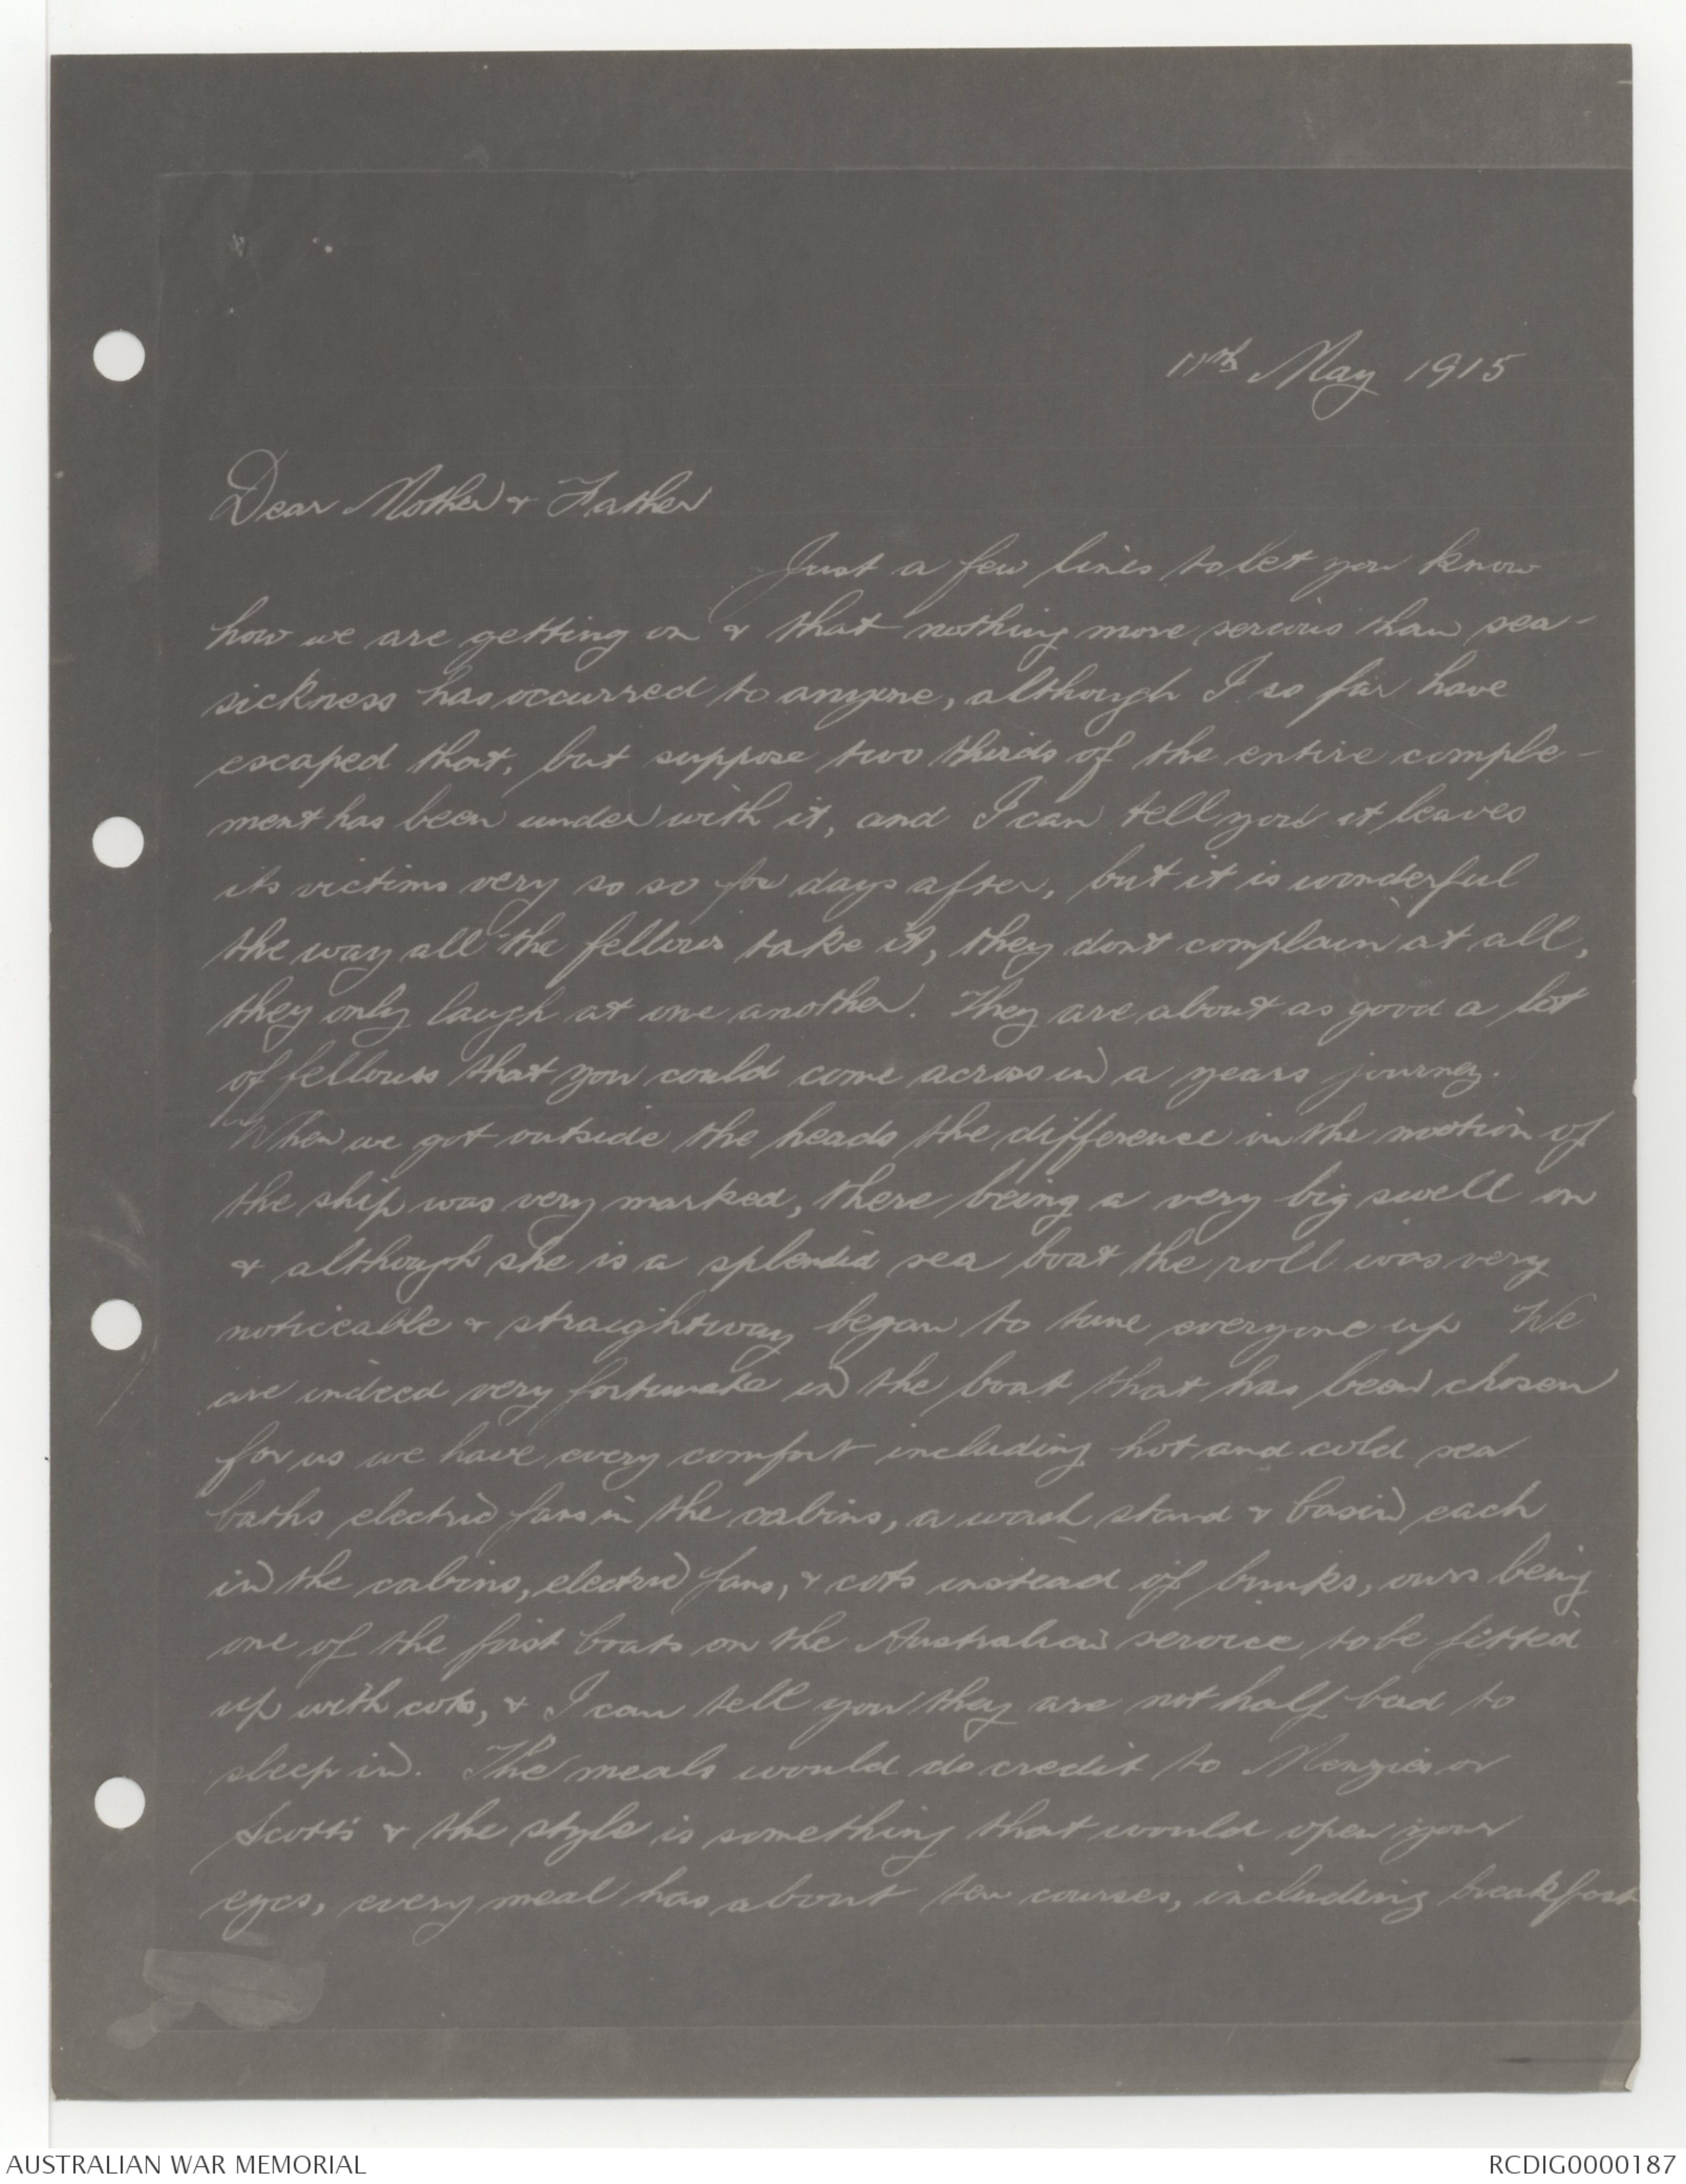 11th May 1915
Dear Mother & Father
Just a few lines to let you know
how we are getting on & that nothing more serious than sea-
sickness has occurred to anyone, although I so far have
escaped that, but suppose two thirds of the entire comple-
ment has been under with it, and I can tell you it leaves
its victims very so so for days after, but it is wonderful
the way all the fellows take it, they don't complain at all,
they only laugh at one another. They are about as good a lot
of fellows that you could come across in a years journey.
When we got outside the heads the difference in the motion of
the ship was very marked, there being a very big swell on
& although she is a splendid sea boat the roll was very
noticeable & straightway began to tune everyone up We
are indeed very fortunate in the boat that has been chosen
for us we have every comfort including hot and cold sea
baths electric fans in the cabins, a wash stand & basin each
in the cabins, electric fans, & cots instead of bunks, ours being
one of the first boats on the Australian service to be fitted
up with cots, & I can tell you they are not half bad to
sleep in. The meals would do credit to Menzies or
Scott's & the style is something that would open your
eyes, every meal has about ten courses, including breakfast
AUSTRALIAN WAR MEMORIAL
RCDIG0000187